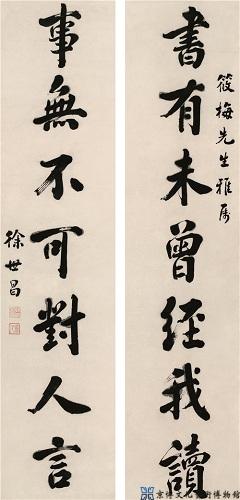 筱梅先生雅属
書有未曾經我讀
事無不可對人言
徐世昌
京傳文化藝術博物館